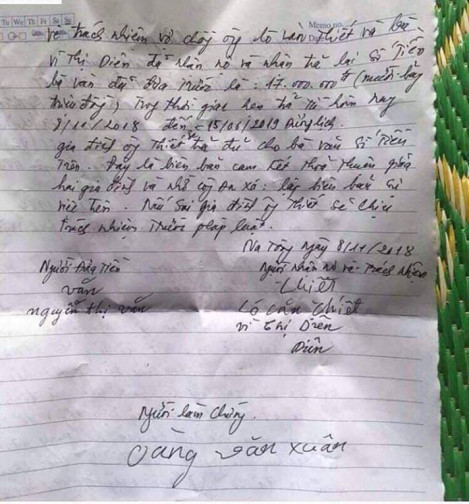 Tu We Th Fr Sa Su
Memo no.
về trách nhiệm vợ chồng ông lò văn Thiết và bà
vì Thị Diên đã nhận nợ và nhận trả lại số Tiền
bà vân đã đưa trước là: 17.000.000đ (mười bảy
triệu đồng) Trong thời gian hẹn trả từ hôm nay
8/11/2018 đến = 15/01/2019 dương lịch.
gia đình ông Thiết trả đủ cho bà vân Số Tiền
Trên. Đây là biên bản cam kết thoả thuận giữa
hai gia đình và nhờ công An xã: lập biên bản
việc trên. Nếu Sai gia đình ông Thiết sẽ chịu
trách nhiệm Trước pháp luật.
Na Tông ngày 8/11/2018
Người đưa Tiền
Người nhận nợ và Trách nhiệm
vân
Thiết
nguyễn thị vân
Lò văn Thiết
vì thị Diên
Diên
Người làm chứng.
vàng văn xuân